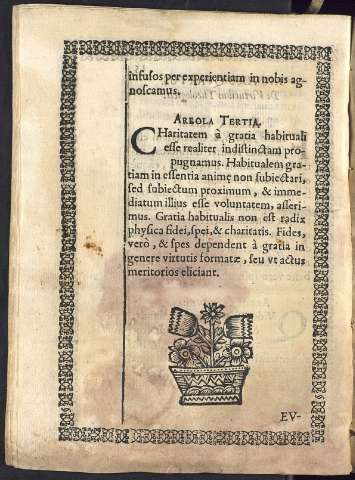 infusos per experientiam in nobis ag-
noscamus.
AREOLA TERTIA.
CHaritatem à gratia habituali
esse realiter indistinctam pro-
pugnamus. Habitualem gra-
tiam in essentia animę non subiectari,
sed subiectum proximum, & imme-
diatum illius esse voluntatem, asseri-
mus. Gratia habitualis non est radix
physica fidei, spei, & charitatis. Fides,
verò, & spes dependent à gratia in
genere virtutis formatæ, seu vt actus
meritorios eliciant.
EV-